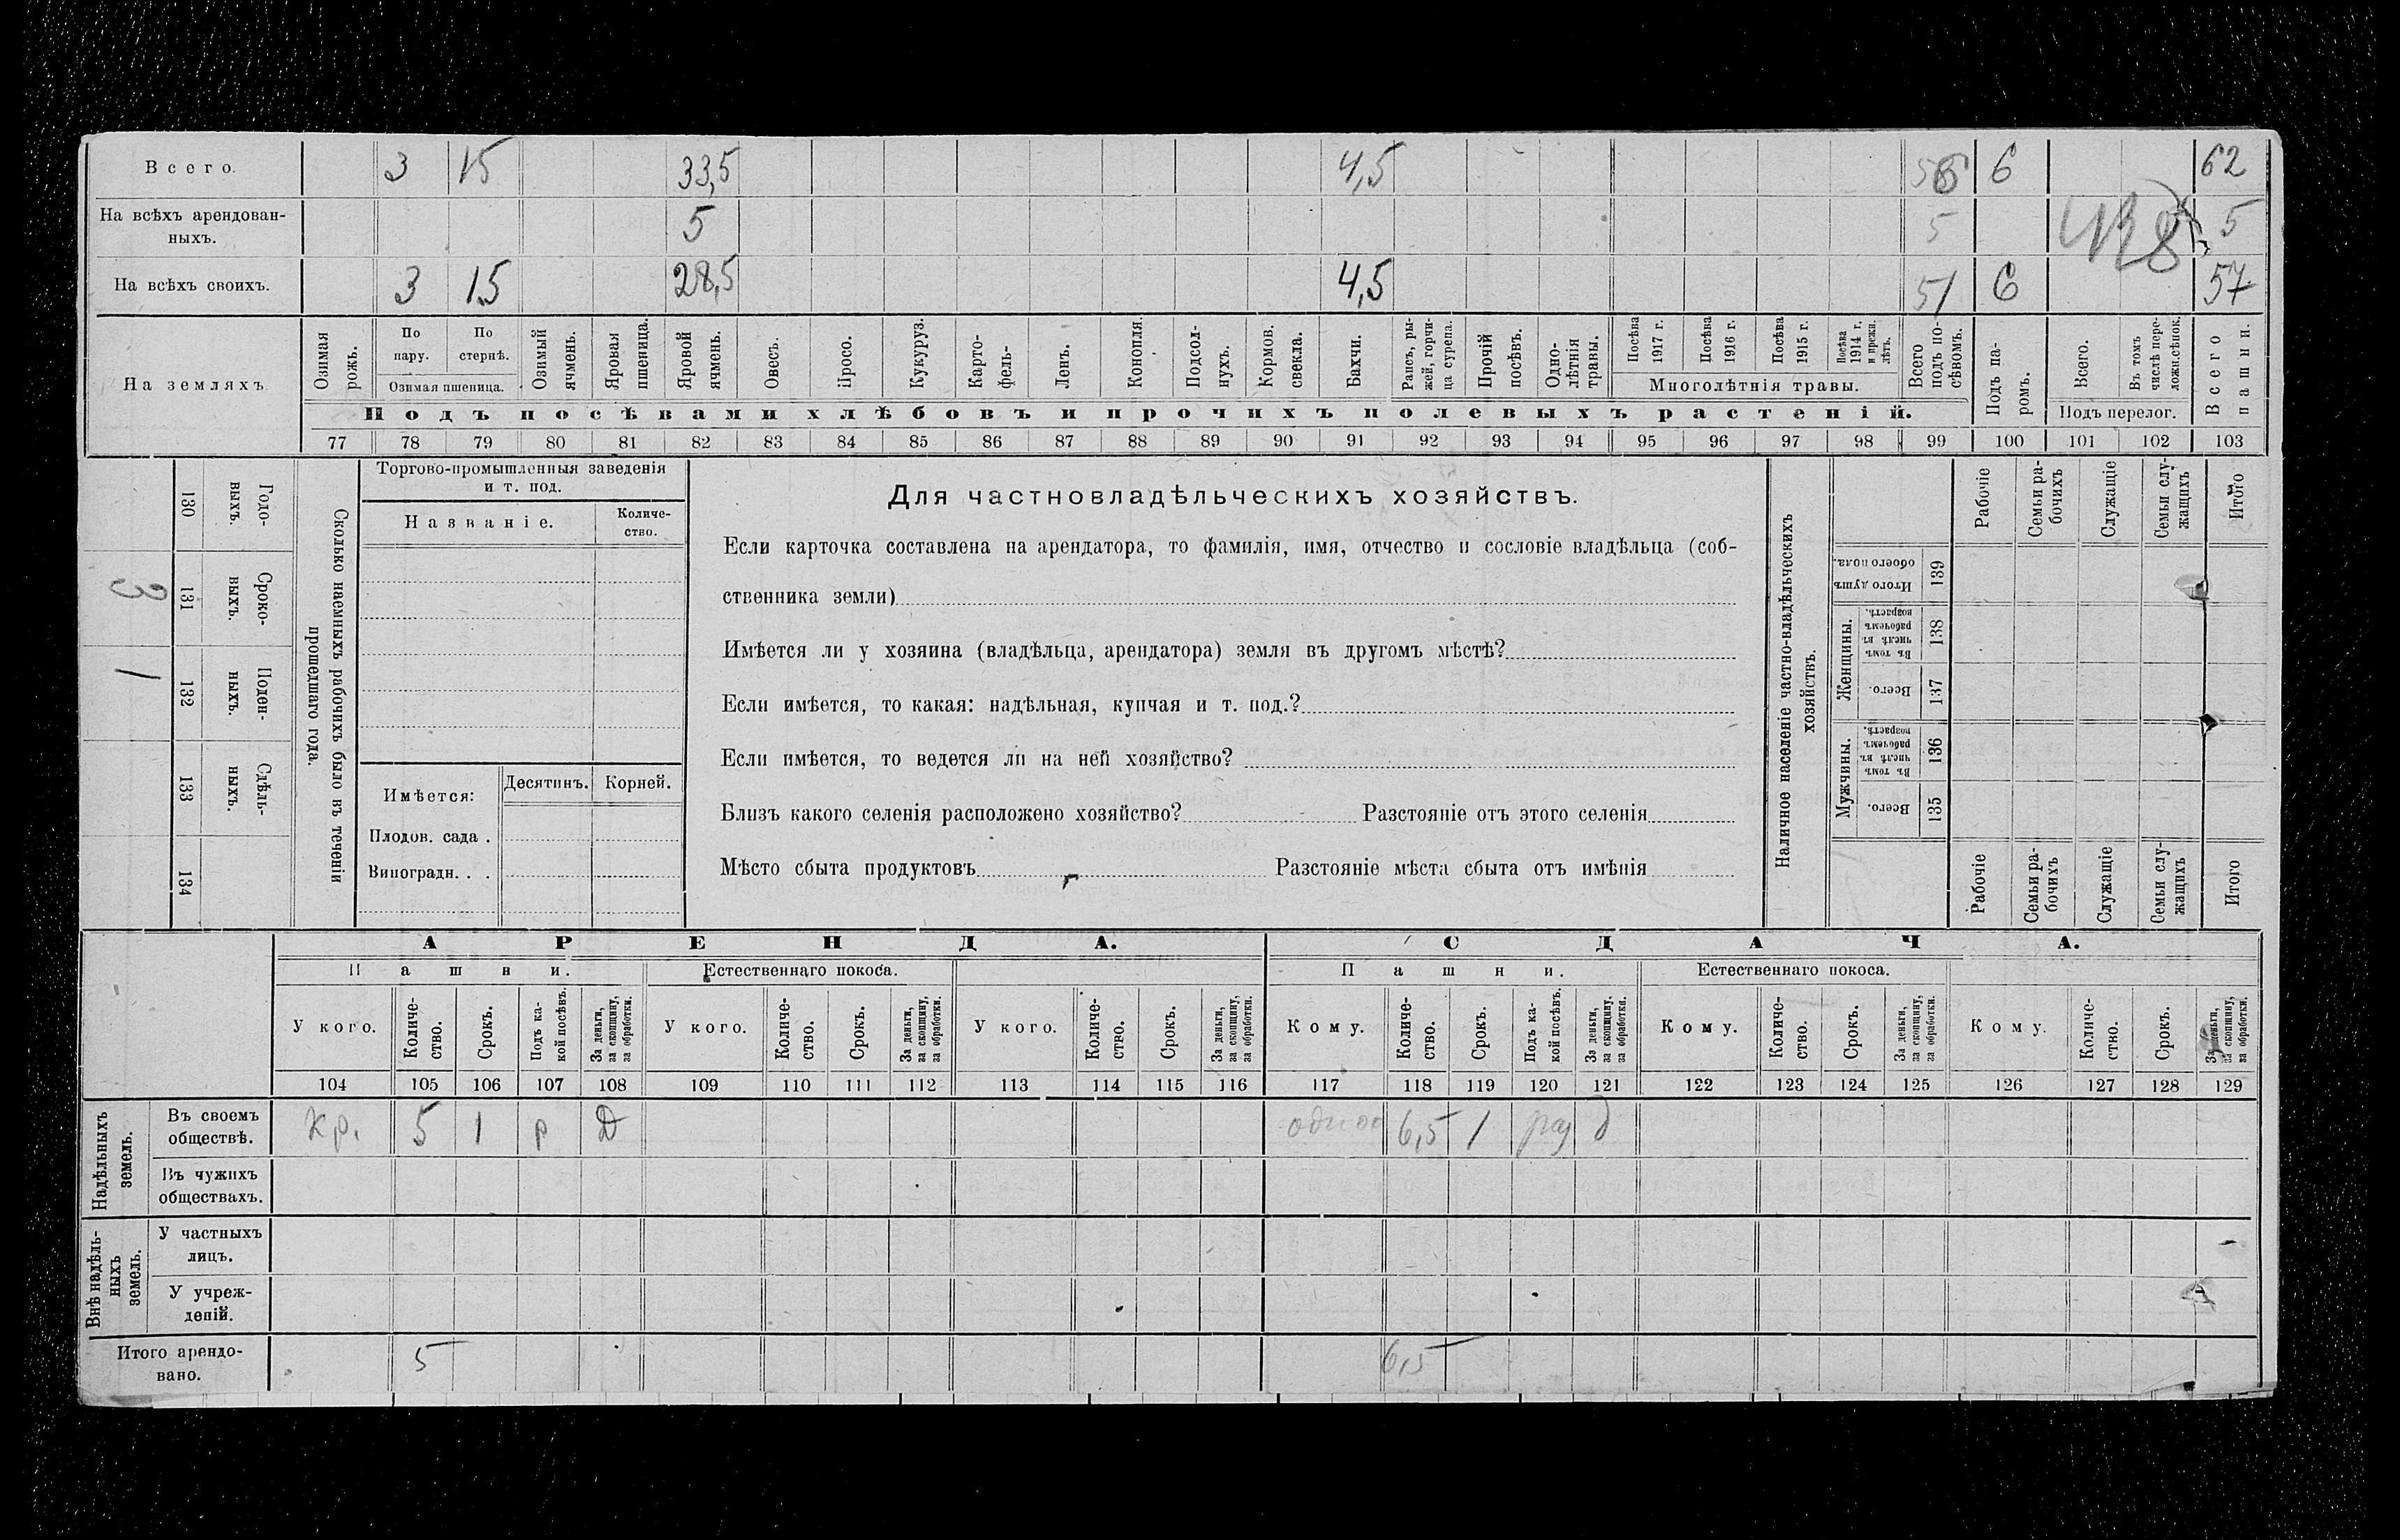 Всего. 3 15 33,5 4,5 56 6 62
На всѣхъ арендован- 5 5 5
ныхъ.
На всѣхъ своихъ. 3 15 28,5 4,5 51 6 57
На земляхъ.
Озимая рожь.
По пару.
По стернѣ.
Озимая пшеница.
Озимый ячмень.
Яровая пшеница.
Яровой ячмень.
Овесъ.
Просо.
Кукуруз.
Карто-
фель-
Ленъ.
Конопля.
Подсол-
нухъ.
Кормов.
свекла.
Бахчи.
Рапсъ, ры-
жей, горчи-
ца сурепа.
Прочій
посѣвъ.
Одно-
лѣтнія
травы.
Посѣва
1917 г.
Посѣва
1916 г.
Посѣва
1915 г.
Посѣва
1914 г.
и прежн.
лѣтъ.
Многолѣтнія травы.
Всего
подъ по-
сѣвомъ.
Подъ па-
ромъ.
Всего.
Въ томъ
числѣ пере-
ложн.сѣнок.
Подъ перелог.
Всего
пашни.
Подъ посѣвами хлѣбовъ и прочихъ полевыхъ растеній.
77 78 79 80 81 82 83 84 85 86 87 88 89 90 91 92 93 94 95 96 97 98 99 100 101 102 103
Сколько наемныхъ рабочихъ было въ теченіи
прошедшаго года.
Годо-
выхъ.
130
Сроко-
выхъ.
131
3
Поден-
ныхъ.
132
1
Сдѣль-
ныхъ.
133
134
Торгово-промышленныя заведенія
и т. под.
Названіе.
Количе-
ство.
Имѣется:
Десятинъ. Корней.
Плодов. сада .
Виноградн. . .
Для частновладѣльческихъ хозяйствъ.
Если карточка составлена на арендатора, то фамилія, имя, отчество и сословіе владѣльца (соб-
ственника земли)
Имѣется ли у хозяина (владѣльца, арендатора) земля въ другомъ мѣстѣ?
Если имѣется, то какая: надѣльная, купчая и т. под.?
Если имѣется, то ведется ли на ней хозяйство?
Близъ какого селенія расположено хозяйство? Разстояніе отъ этого селенія
Мѣсто сбыта продуктовъ Разстояніе мѣста сбыта отъ имѣнія
Наличное населеніе частно-владѣльческихъ
хозяйствъ.
Рабочіе
Семьи ра-
бочихъ
Служащіе
Семьи слу-
жащихъ
Итого
Итого душъ
обоего пола.
139
Женщины.
Въ томъ
числѣ въ
рабочемъ
возрастѣ.
138
Всего.
137
Мужчины.
Въ томъ
числѣ въ
рабочемъ
возрастѣ.
136
Всего.
135
Рабочіе
Семьи ра-
бочихъ
Служащіе
Семьи слу-
жащихъ
Итого
АРЕНДА. СДАЧА.
Пашни. Естественнаго покоса. Пашни. Естественнаго покоса.
У кого.
Количе-
ство.
Срокъ.
Подъ ка-
кой посѣвъ.
За деньги,
за скопщину,
за обработки.
У кого.
Количе-
ство.
Срокъ.
За деньги,
за скопщину,
за обработки.
У кого.
Количе-
ство.
Срокъ.
За деньги,
за скопщину,
за обработки.
Кому.
Количе-
ство.
Срокъ.
Подъ ка-
кой посѣвъ.
За деньги,
за скопщину,
за обработки.
Кому.
Количе-
ство.
Срокъ.
За деньги,
за скопщину,
за обработки.
Кому.
Количе-
ство.
Срокъ.
За деньги,
за скопщину,
за обработки.
104 105 106 107 108 109 110 111 112 113 114 115 116 117 118 119 120 121 122 123 124 125 126 127 128 129
Надѣльныхъ
земель.
Въ своемъ
обществѣ.
кр. 5 1 р Д 6,5 1 д
Въ чужихъ
обществахъ.
Внѣ надѣль-
ныхъ
земель.
У частныхъ
лицъ.
У учреж-
деній.
Итого арендо-
вано.
5 6,5